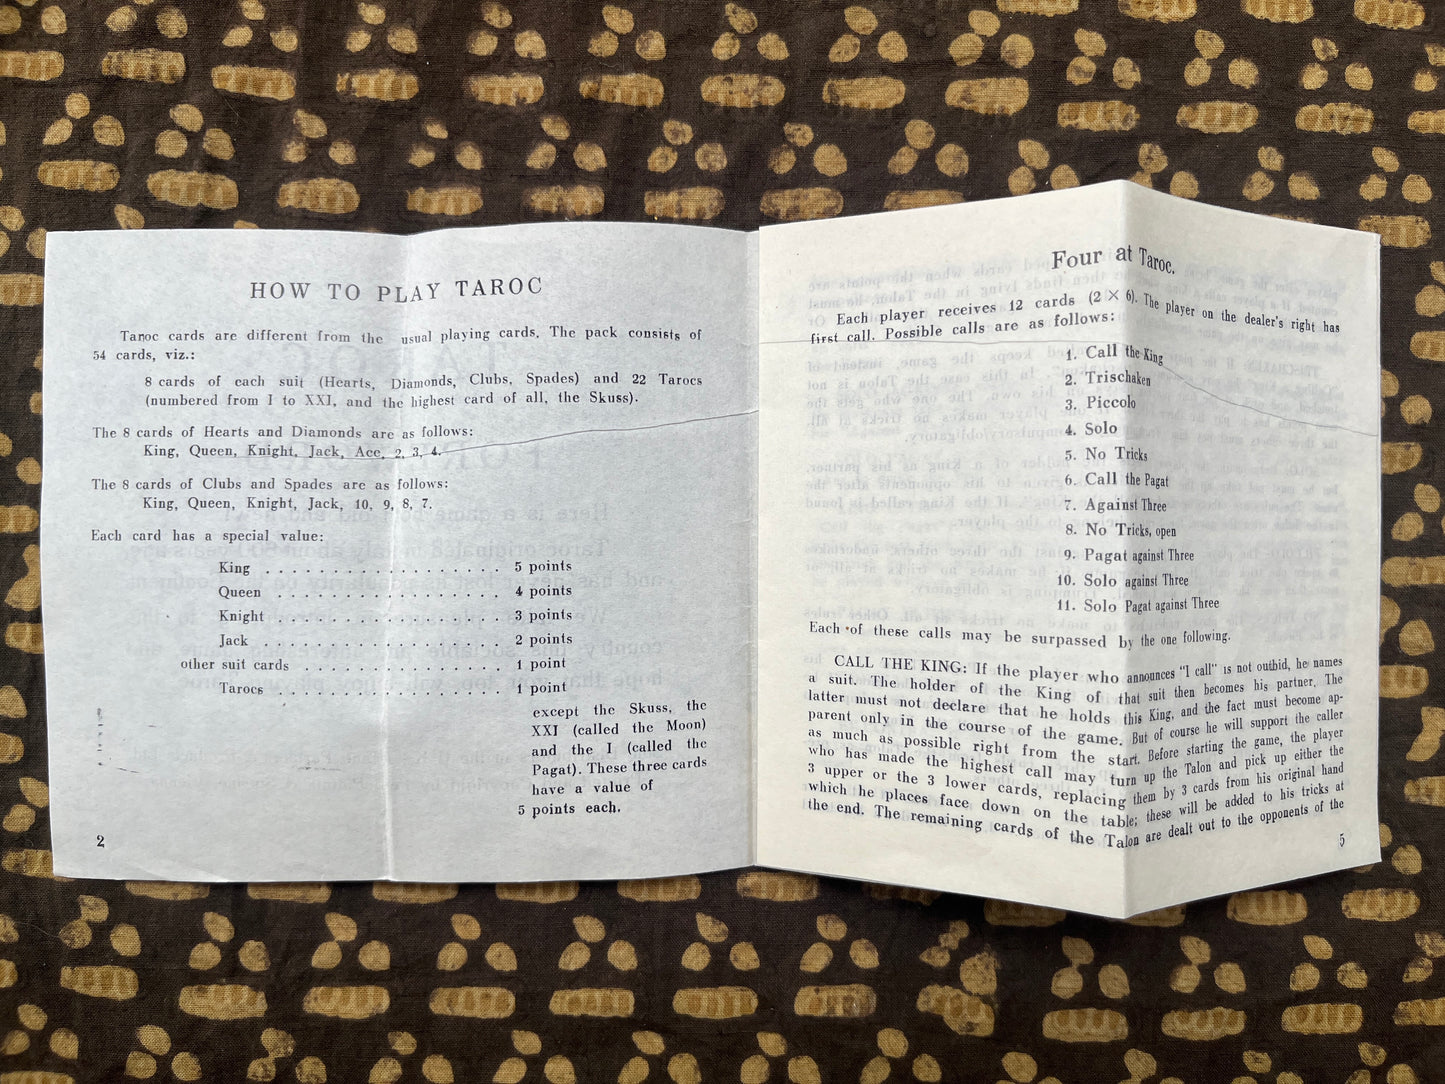 HOW TO PLAY TAROC
Taroc cards are different from the usual playing cards. The pack consists of
54 cards, viz.:
8 cards of each suit (Hearts, Diamonds, Clubs, Spades) and 22 Tarocs
(numbered from I to XXI, and the highest card of all, the Skuss).
The 8 cards of Hearts and Diamonds are as follows:
King, Queen, Knight, Jack, Ace, 2, 3, 4.
The 8 cards of Clubs and Spades are as follows:
King, Queen, Knight, Jack, 10, 9, 8, 7.
Each card has a special value:
King . . . . . . . . . . . . . . . . . . 5 points
Queen . . . . . . . . . . . . . . . . . 4 points
Knight . . . . . . . . . . . . . . . . . 3 points
Jack . . . . . . . . . . . . . . . . . . 2 points
other suit cards . . . . . . . . . . . . . . . 1 point
Tarocs . . . . . . . . . . . . . . . . . 1 point
except the Skuss, the
XXI (called the Moon)
and the I (called the
Pagat). These three cards
have a value of
5 points each.
2
Four at Taroc.
Each player receives 12 cards (2 × 6). The player on the dealer's right has
first call. Possible calls are as follows:
1. Call the King
2. Trischaken
3. Piccolo
4. Solo
5. No Tricks
6. Call the Pagat
7. Against Three
8. No Tricks, open
9. Pagat against Three
10. Solo against Three
11. Solo Pagat against Three
Each of these calls may be surpassed by the one following.
CALL THE KING: If the player who announces "I call" is not outbid, he names
a suit. The holder of the King of that suit then becomes his partner. The
latter must not declare that he holds this King, and the fact must become ap-
parent only in the course of the game. But of course he will support the caller
as much as possible right from the start. Before starting the game, the player
who has made the highest call may turn up the Talon and pick up either the
3 upper or the 3 lower cards, replacing them by 3 cards from his original hand
which he places face down on the table; these will be added to his tricks at
the end. The remaining cards of the Talon are dealt out to the opponents of the
5